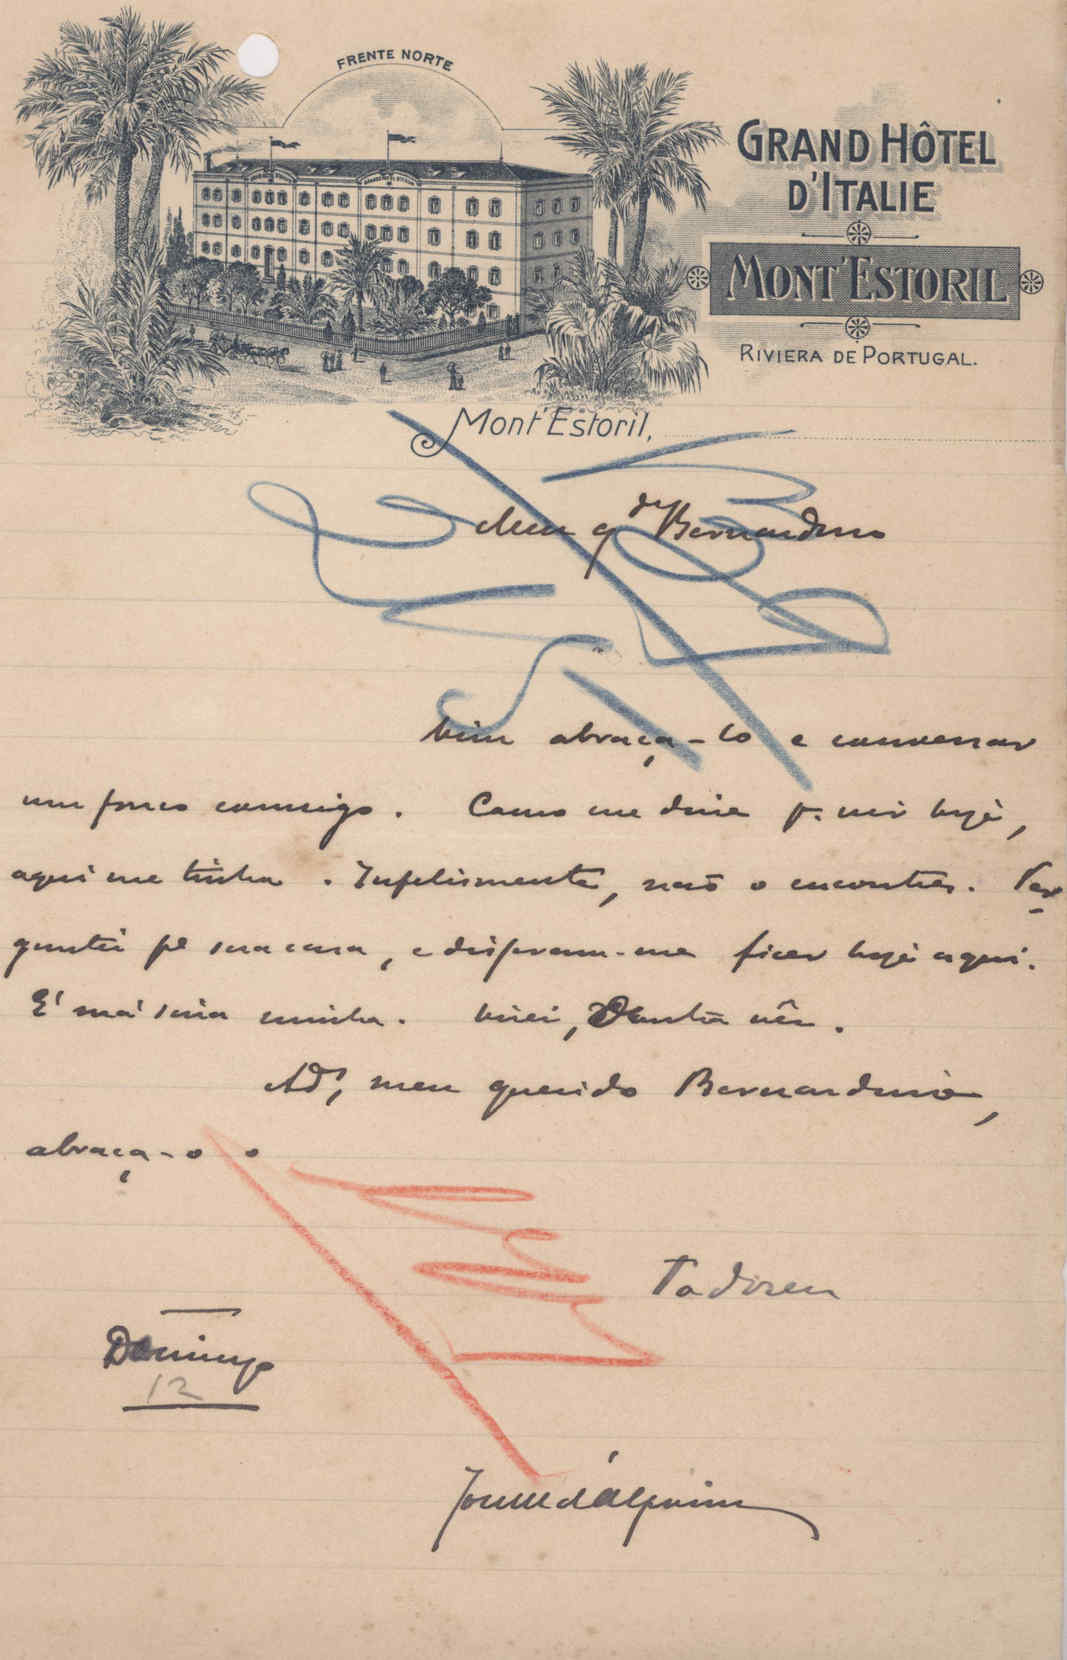 FRENTE NORTE
GRAND HÔTEL
D'ITALIE
MONT'ESTORIL
RIVIERA DE PORTUGAL.
Mont'Estoril,
Meu q do Bernardino
Vim abraça-lo e conversar
um pouco comsigo. Como me disse p. vir hoje,
aqui me tinha. Infelismente, não o encontrei. Per
guntei pª sua casa, e disseram-me ficar hoje aqui.
E' má sina minha. Virei,
Ad', meu querido Bernardino,
abraça-o o
Todo seu
Domingo
12